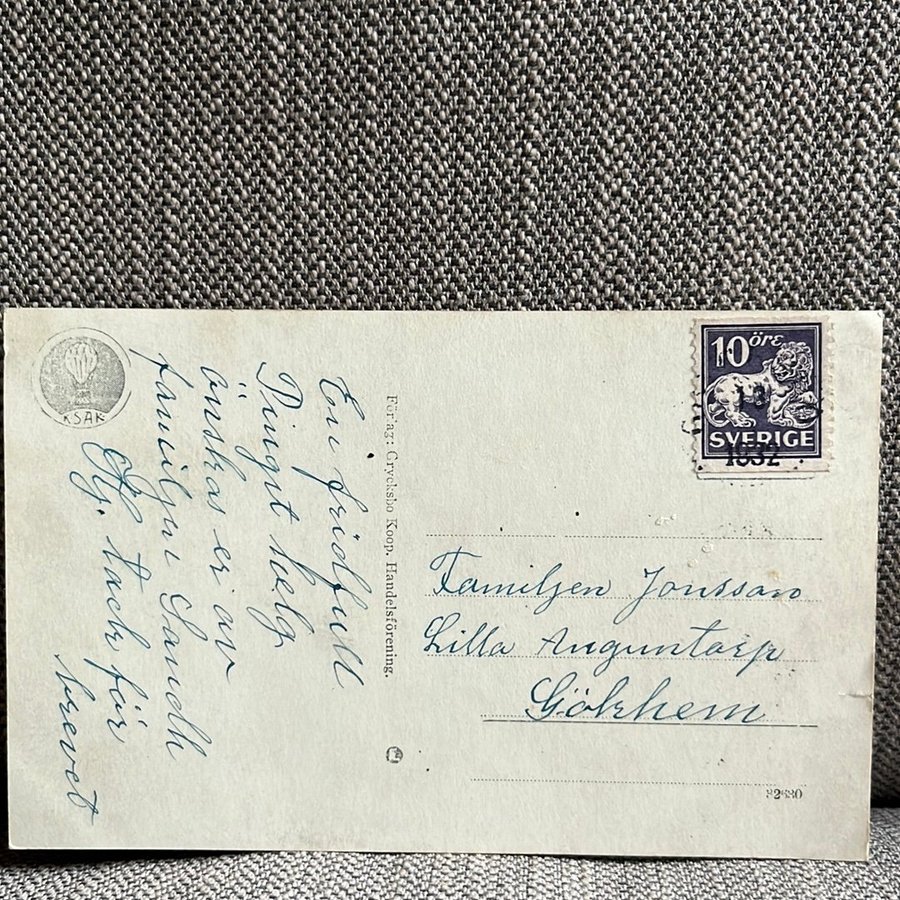 KSAK
En fridfull
Pingst helg
önskas er av
familjen Sandh
Hj. tack för
brevet
Förlag: Grycksbo Koop. Handelsförening.
10 ÖRE
SVERIGE
1932
Familjen Jonsson
Lilla Anguntorp
Gökhem